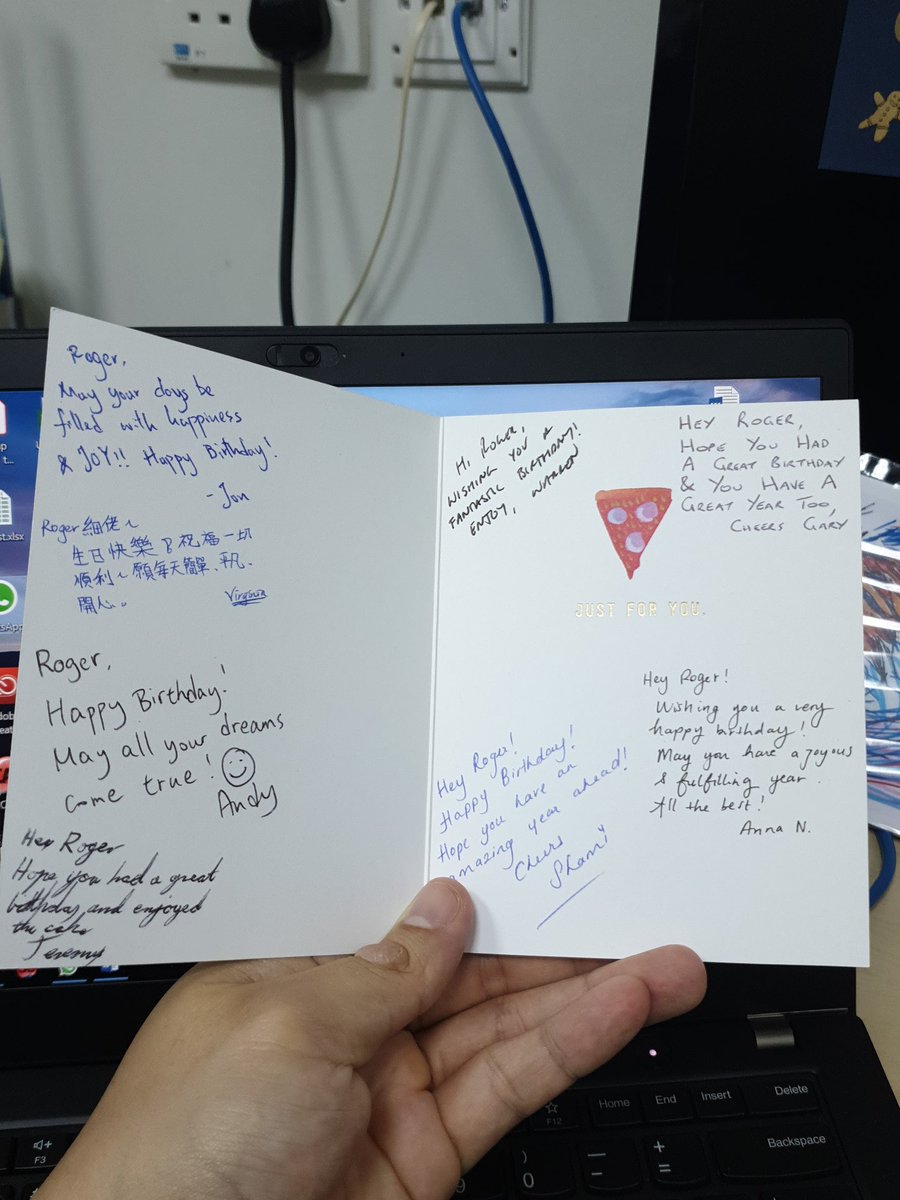 Roger,
May your days be
filled with happiness
& JOY!! Happy Birthday!
- Jon
Roger細佬~
生日快樂!祝福一切
順利~願每天簡單、平凡、
開心。
Virginia
Roger,
Happy Birthday!
May all your dreams
come true!
Andy
Hey Roger
Hope you had a great
birthday and enjoyed
the cake
Jeremy
HI, ROGER,
WISHING YOU A
FANTASTIC BIRTHDAY!
ENJOY, WARREN
HEY ROGER,
HOPE YOU HAD
A GREAT BIRTHDAY
& YOU HAVE A
GREAT YEAR TOO,
CHEERS GARY
JUST FOR YOU.
Hey Roger!
Happy Birthday!
Hope you have an
amazing year ahead!
Cheers
Shami
Hey Roger!
Wishing you a very
happy birthday!
May you have a joyous
& fulfilling year.
All the best!
Anna N.
.xlsx
Home End Insert Delete
F12
Backspace
F3
9 ) 0 _ - + =